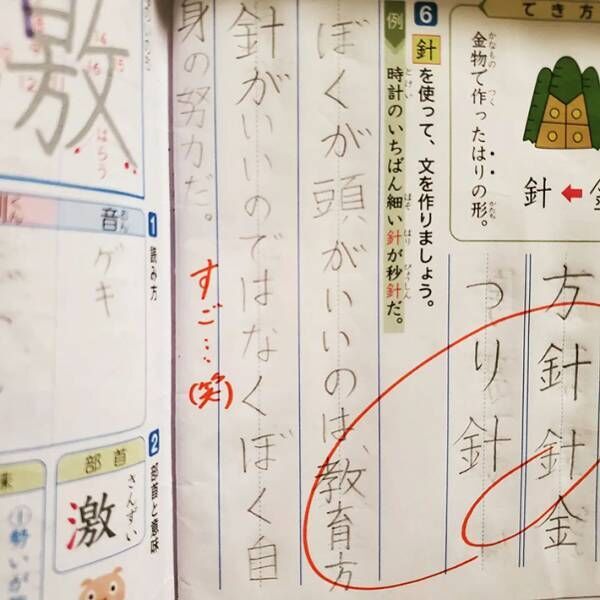 でき方
金物で作ったはりの形。
かなもの
つく
かたち
針
6 針を使って、文を作りましょう。
例 時計のいちばん細い針が秒針だ。
とけい
ほそ
はり
びょうしん
方針 針金
つり針
ぼくが頭がいいのは、教育方
針がいいのではなくぼく自
身の努力だ。
すご…(笑)
激
はらう
1 読み方
音
おん
ゲキ
2 部首と意味
部首
さんずい
激